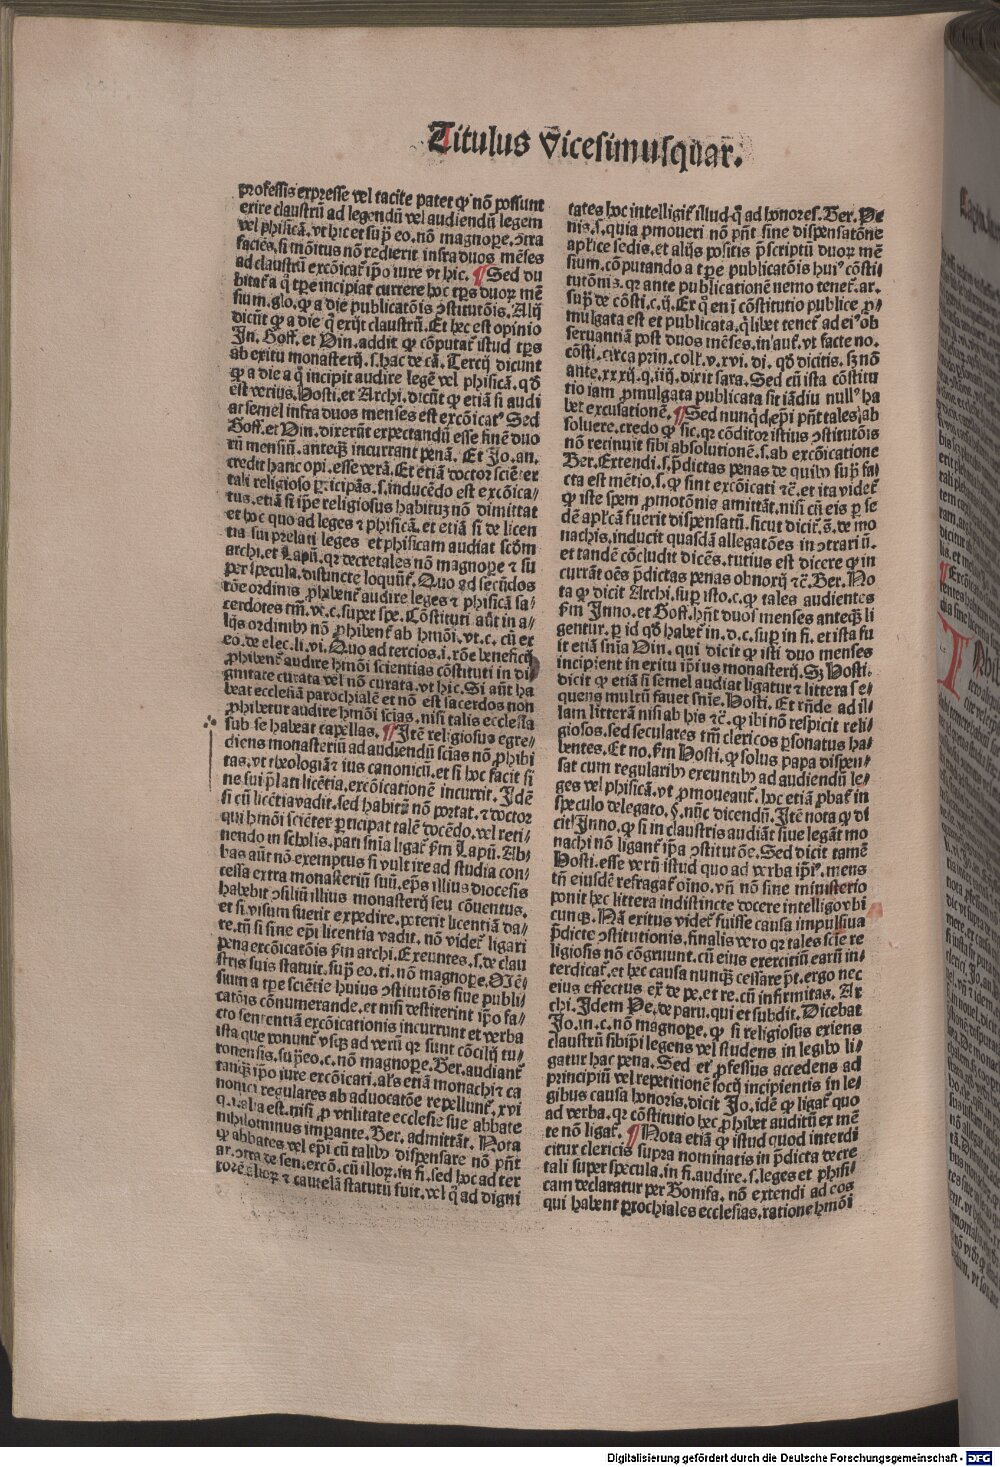 Titulus Vicesimusquar.
professis expresse vel tacite patet ꝙ nō possunt
exire claustrū ad legendū vel audiendū legem
vel phisicā. vt hic et supͥ eo. nō magnope. ꝯtra
facies. si mōitus nō redierit infra duos mēses
ad claustrū excōicat̄ ip̄o iure vt hic. ¶ Sed du
bitat̄ a q̄ tp̄e incipiat currere hoc tp̄s duoꝝ mē
sium. glo. ꝙ a die publicatōis ꝯstitutōis. Alij
dicūt ꝙ a die q̄ exijt claustrū. Et hec est opinio
Jn. Goff. et Vin. addit ꝙ cōputat̄ istud tp̄s
ab exitu monasterij. s. hac de cā. Tercij dicunt
ꝙ a die a q̄ incipit audire legē vel phisicā. qd̄
est verius. Hosti. et Archi. dicūt ꝙ etiā si audi
at semel infra duos menses est excōicatꝰ Sed
Goff. et Vin. dixerūt expectandū esse finē duo
rū mensiū. anteqꝫ incurrant penā. Et Jo. an.
credit hanc opi. esse verā. Et etiā doctor sciēter
tali religioso ꝑticipās. s. inducēdo est excōica-
tus. etiā si ip̄e religiosus habituꝫ nō dimittat
et hoc quo ad leges ⁊ phisicā. et etiā si de licen
tia sui prelati leges et phisicam audiat scd̄m
archi. et Lapū. qꝛ decretales nō magnope ⁊ su
per specula. distincte loquūt̄. Quo ad secūdos
rōe ordinis ꝓhibent̄ audire leges ⁊ phisicā sa-
cerdotes tm̄. vt. c. super spe. Cōstituti aūt in a-
lijs ordinibꝰ nō ꝓhibent̄ ab hmōi. vt. c. cū ex
eo. de elec. li. vi. Quo ad tercios. i. rōe beneficij
ꝓhibent̄ audire hmōi scientias cōstituti in di
gnitate curata vel nō curata. vt hic. Si aūt ha
beat ecclesiā parochialē et nō est sacerdos non
ꝓhibetur audire hmōi scīas. nisi talis ecclesia
sub se habeat capellas. ¶ Jtē religiosus egre-
diens monasteriū ad audiendū scīas nō ꝓhibi
tas. vt theologiā ⁊ ius canonicū. et si hoc facit si
ne sui p̄lati licētia. excōicationē incurrit. Jdē
si cū licētia vadit. sed habitū nō portat. ⁊ doctor
qui hmōi sciēter ꝑticipat talē docēdo. vel reti-
nendo in scholis. pari snīa ligat̄ ẜm Lapū. Ab-
bas aūt nō exemptus si vult ire ad studia con-
cessa extra monasteriū suū. ep̄s illius diocesis
habebit ꝯsiliū illius monasterij seu cōuentus.
et si visum fuerit expedire. peterit licentiā da-
re. tn̄ si sine ep̄i licentia vadit. nō videt̄ ligari
pena excōicatōis ẜm archi. Exeuntes. s. de clau
stris suis statuit. supͥ eo. ti. nō magnope. Mē-
sium a tp̄e sciētie huius ꝯstitutōis siue publi-
catōis cōnumerande. et nisi destiterint ip̄o fa-
cto sententiā excōicationis incurrunt et verba
ista que ponunt̄ vsqꝫ ad verū qꝛ sunt cōcilij tu-
ronensis. supͥ eo. c. nō magnope. Ber. audiant̄
tanqꝫ ip̄o iure excōicati. als̄ etiā monachi ⁊ ca
nonici regulares ab aduocatōe repellunt̄. xvi
est. nisi ꝓ vtilitate ecclesie sue abbate
nihilominus imperante. Ber. admittāt. Nota
ꝙ abbates vel ep̄i cū talibꝰ dispensare nō pn̄t
ar. ꝯtra de sen. excō. cū illoꝝ. in fi. sed hoc ad ter
⁊ cautelā statutū fuit. vel q̄ ad digni
tates hoc intelligit̄ illud q̄ ad honores. Ber. Pe
nis. s. quia ꝓmoueri nō pn̄t sine dispensatōne
aplice sedis. et alijs positis p̄scriptū duoꝝ mē
sium. cōputando a tp̄e publicatōis huiꝰ cōsti-
tutōnis. qꝛ ante publicationē nemo tenet̄. ar.
supͥ de cōsti. c. ij. Ex q̄ eni cōstitutio publice ꝓ-
mulgata est et publicata. q̄libet tenet̄ ad eiꝰ ob
seruantiā post duos mēses. in aut̄. vt facte no.
cōsti. circa prin. coll. v. xvi. di. qd̄ dicitis. sꝫ nō
ante. xxxij. q. iiij. dixit sara. Sed cū ista cōstitu
tio iam ꝓmulgata publicata sit iādiu nullꝰ ha
bet excusationē. ¶ Sed nunqd̄ ep̄i pn̄t tales ab
soluere. credo ꝙ sic. qꝛ cōditor istius ꝯstitutōis
nō retinuit sibi absolutionē. s. ab excōicatione
Ber. Extendi. s. p̄dictas penas de quibꝰ supͥ fa-
cta est mētio. s. ꝙ sint excōicati ⁊c̄. et ita videt̄
ꝙ iste spem ꝓmotōnis amittāt. nisi cū eis ꝑ se
dē aplicā fuerit dispensatū. sicut dicit̄. s̄. de mo
nachis. inducit quasdā allegatōes in ꝯtrariū.
et tandē cōcludit dicēs. tutius est dicere ꝙ in
currāt oēs p̄dictas penas obnorij ⁊c̄. Ber. No
ta ꝙ dicit Archi. supͥ isto. c. ꝙ tales audientes
ẜm Jnno. et Goff. hn̄t duos menses anteqꝫ li
gentur. ꝑ id qd̄ habet̄ in. d. c. supͥ in fi. et ista fu
it etiā snīa Vin. qui dicit ꝙ isti duo menses
incipient in exitu ip̄ius monasterij. Sꝫ Hosti.
dicit ꝙ etiā si semel audiat ligatur ⁊ littera se-
quens multū fauet snīe. Hosti. Et rn̄de ad il-
lam litterā nisi ab his ⁊c̄. ꝙ ibi nō respicit reli-
giosos. sed seculares tm̄ clericos ꝑsonatus ha-
bentes. Et no. ẜm Hosti. ꝙ solus papa dispen-
sat cum regularibꝰ exeuntibꝰ ad audiendū le-
ges vel phisicā. vt ꝓmoueant̄. hoc etiā ꝓbat̄ in
speculo delegato. §. nūc dicendū. Jtē nota ꝙ di
cit Jnno. ꝙ si in claustris audiāt siue legāt mo
nachi nō ligant̄ ip̄a ꝯstitutōe. Sed dicit tamē
Hosti. esse verū istud quo ad verba ip̄iꝰ. mens
tn̄ eiusdē refragat̄ oīno. vn̄ nō sine ministerio
ponit hec littera indistincte docere intelligo vbi
cunqꝫ. Nā exitus videt̄ fuisse causa impulsiua
p̄dicte ꝯstitutionis. finalis vero qꝛ tales scīe re
ligiosis nō cōgruunt. cū eius exercitiū earū in-
terdicat̄. et hec causa nunqꝫ cessare pōt. ergo nec
eius effectus ex̄ de pe. et re. cū infirmitas. Ar
chi. Jdem Pe. de paru. qui et subdit. Dicebat
Jo. in. c. nō magnope. ꝙ si religiosus exiens
claustrū sibiip̄i legens vel studens in legibꝰ li-
gatur hac pena. Sed et ꝓfessus accedens ad
principiū vel repetitionē socij incipientis in le-
gibus causa honoris. dicit Jo. idē ꝙ ligat̄ quo
ad verba. qꝛ cōstitutio hec ꝓhibet auditū ex mē
te nō ligat̄. ¶ Nota etiā ꝙ istud quod interdi
citur clericis supra nominatis in p̄dicta decre
tali super specula. in fi. audire. s. leges et phisi-
cam declaratur per Bonifa. nō extendi ad eos
qui habent ꝑrochiales ecclesias. ratione hmōi
Digitalisierung gefördert durch die Deutsche Forschungsgemeinschaft - DFG